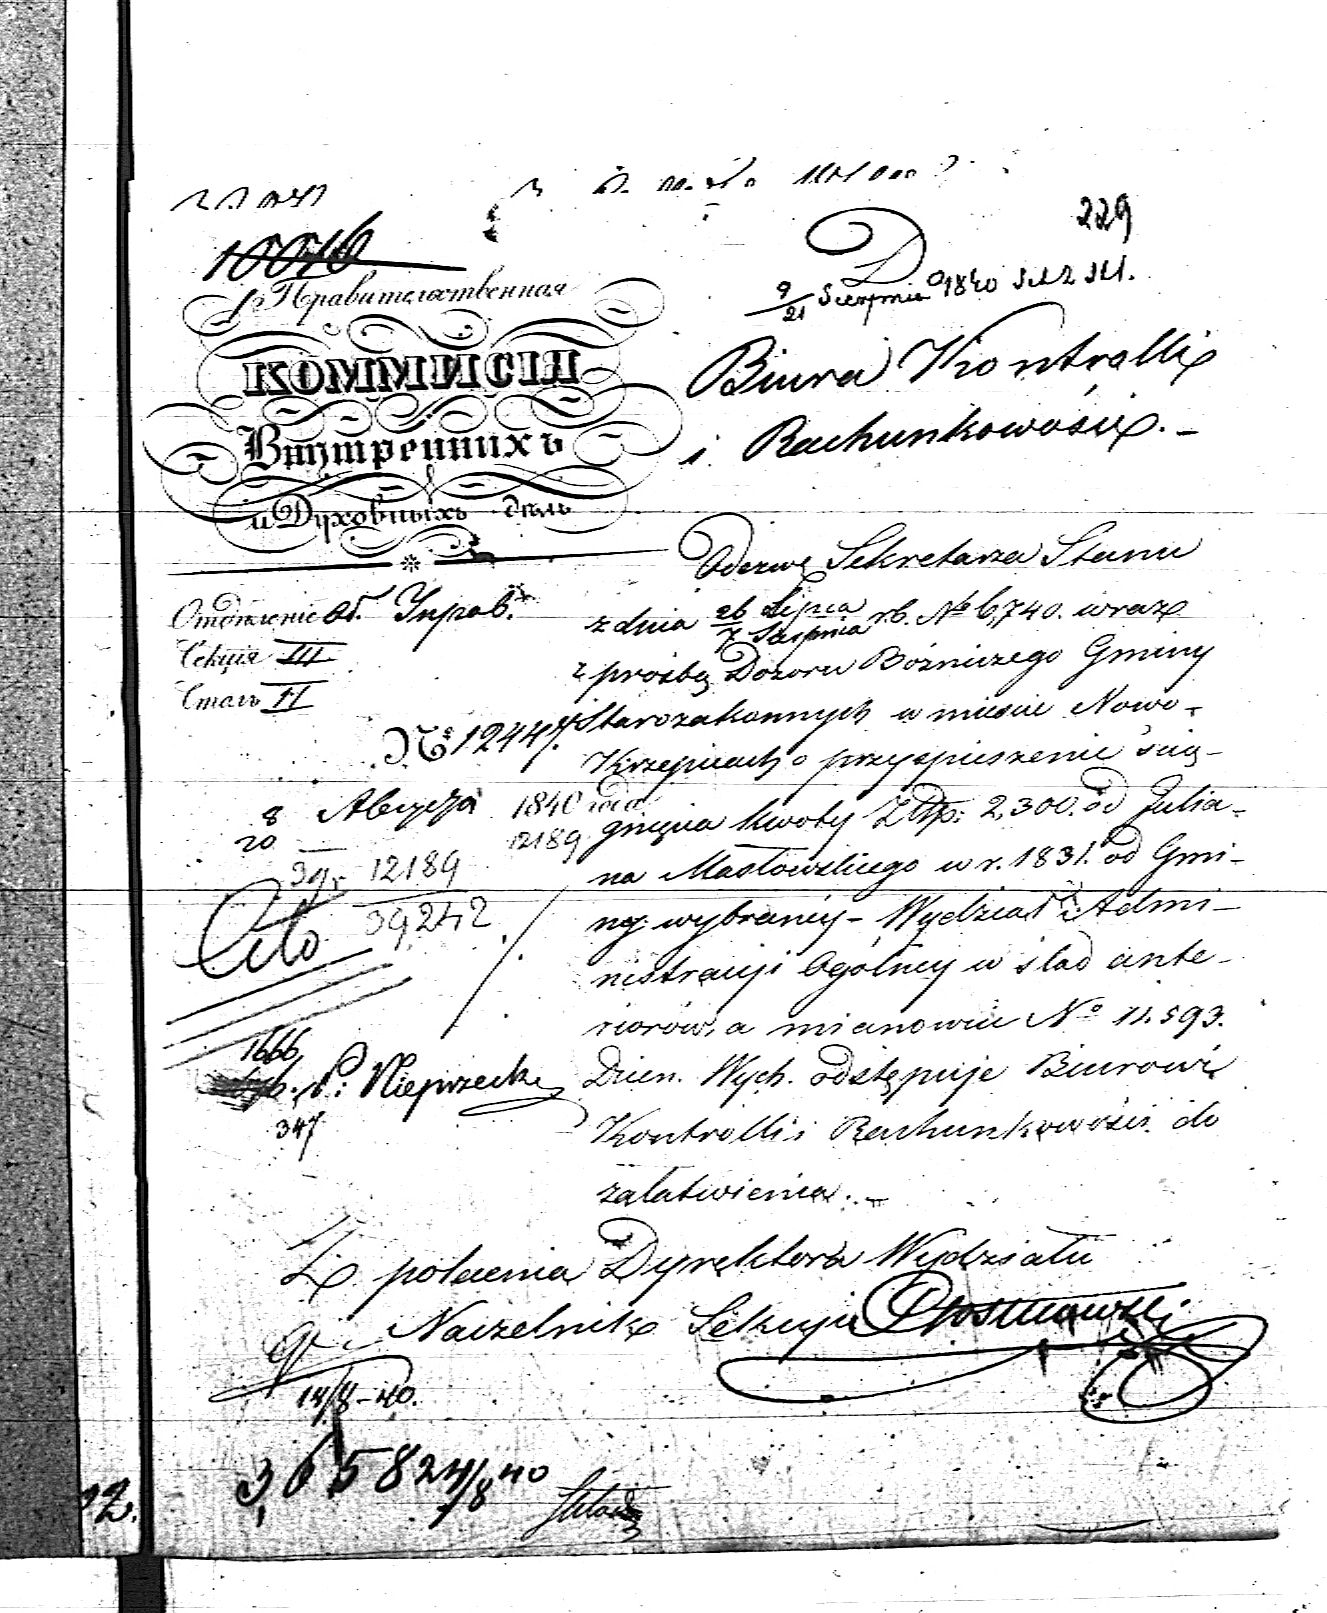 229
10076
Правительственная
КОММИСІЯ
Внутреннихъ
и Духовныхъ дѣлъ
Do
9/21 Sierpnia 1840
Biura Kontrolli
i Rachunkowości. -
Отдѣленіе Об. Управ.
Секція III
Столъ II
№ 12447.
8/20 Августа 1840 года
12189
39/12189
39242
Cito
1666
P: Nieprzecki
347
Odezwę Sekretarza Stanu
z dnia 26 Lipca/7 Sierpnia r.b. № 6,740. wraz
z prośbą Dozoru Bóżniczego Gminy
Starozakonnych w mieście Nowo-
Krzepicach o przyspieszenie ścią-
gnięcia kwoty Złtp: 2,300. od Julia-
na Masłowskiego w r. 1831. od Gmi-
ny wybraney - Wydział Admi-
nistracyi Ogólney w ślad ante-
riorów, a mianowicie № 11.593.
Dzien. Wych. odstępuje Biurowi
Kontrolli i Rachunkowości do
załatwienia. -
Z polecenia Dyrektora Wydziału
Naczelnik Sekcyi
14/8-40.
3,658 24/8 40